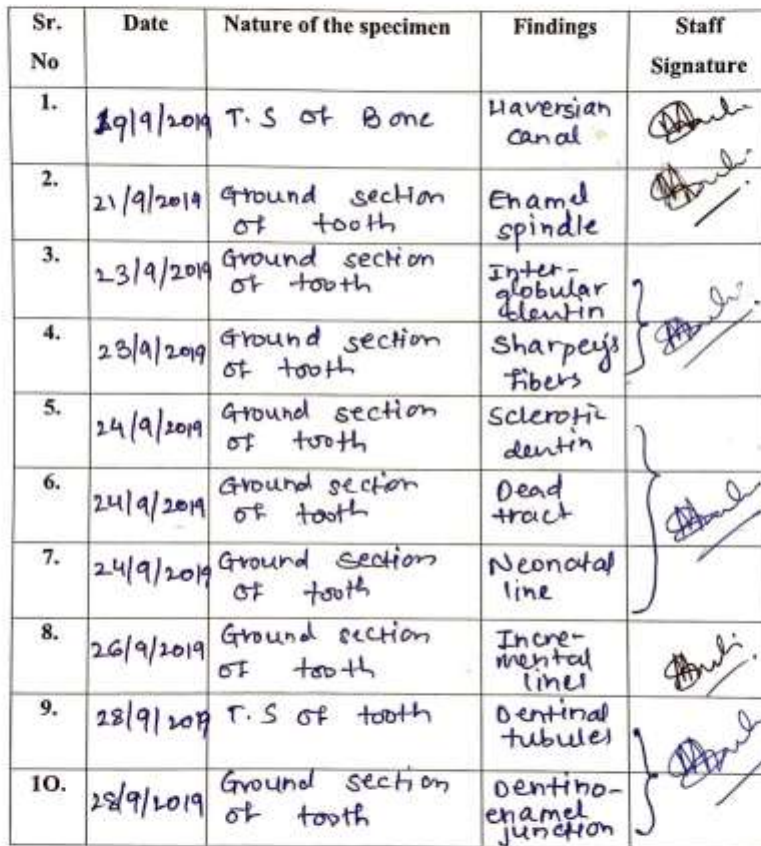 Sr. No Date Nature of the specimen Findings Staff Signature
1. 19/9/2019 T.S of Bone Haversian canal
2. 21/9/2019 Ground section of tooth Enamel spindle
3. 23/9/2019 Ground section of tooth Inter-globular dentin
4. 23/9/2019 Ground section of tooth Sharpey's fibers
5. 24/9/2019 Ground section of tooth Sclerotic dentin
6. 24/9/2019 Ground section of tooth Dead tract
7. 24/9/2019 Ground section of tooth Neonatal line
8. 26/9/2019 Ground section of tooth Incre-mental lines
9. 28/9/2019 T.S of tooth Dentinal tubules
10. 28/9/2019 Ground section of tooth Dentino-enamel junction